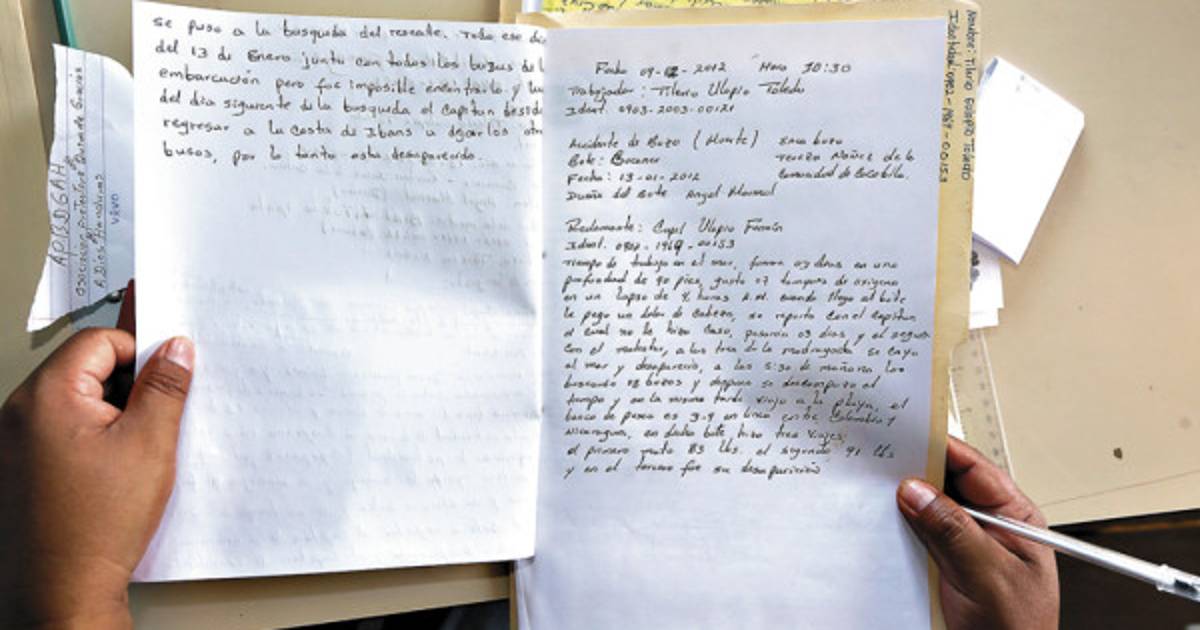 se puso a la busquida del rescate. Todo ese dia
del 13 de Enero junto con todos los buzos de l
embarcación pero fue imposible encontrarlo. y lu
del dia siguiente de la busqueda el capitan desid
regresar a la costa de Ibans a dejar los otr
busos, por lo tanto esta desaparecido.
Fecha 09-02-2012 Hora 10:30
Trabajador: Tilerio Ulopio Toledo
Ident. 0903-2003-00121
Accidente de Buzo (Muerte) Saca buzo
Bote: Bucaner
Teresa Nuñez de la
Fecha: 13-01-2012
Comunidad de Cocobila.
Dueño del Bote Angel
Reclamante: Ulopio
Ident. 0902-1969-00153
Tiempo de trabajo en el mar, fueron 03 dias en una
profundidad de 90 pies, gasto 07 tanques de oxigeno
en un lapso de 4 horas A.M. cuando llego al bote
le pego un dolor de cabeza, se reporto con el capitan
el cual no le hizo caso, pasaron 03 dias y el seguia
con el malestar, a las tres de la madrugada se cayo
al mar y desaparecio, a las 5:30 de mañana los
buscando 18 buzos y despues se descompuso el
tiempo y en la misma tarde viajo a la playa, el
banco de pesca es 3-9 en linea entre Colombia y
Nicaragua, en dicho bote hizo tres viajes,
el primero 83 lbs. el segundo 91 lbs
y en el tercero fue su desaparicion
Nombre: Tilerio Toledo
Identidad: 0902-1969-00153
APBDGAH
Asociacion Gracias
A Dios Honduras
VIVO